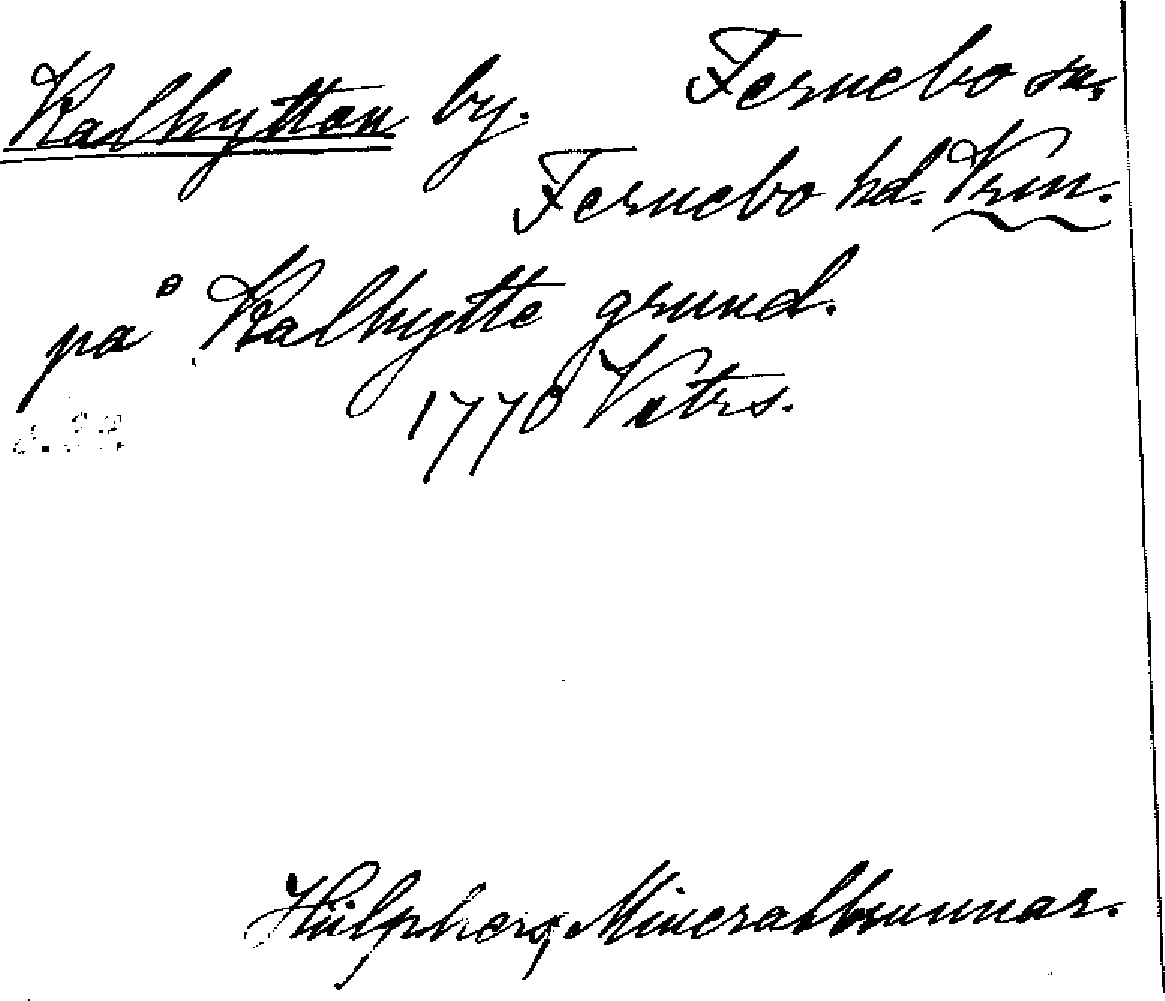 Kalhyttan by. Fernebo sn.
Fernebo hd. Vrm.
på Kalhytte grund.
1770 Vatrs.
Hülpherq Mineralbrunnar.